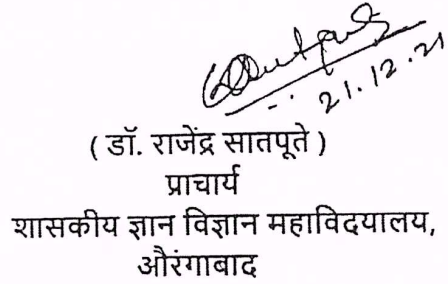 21.12.21
( डॉ. राजेंद्र सातपूते )
प्राचार्य
शासकीय ज्ञान विज्ञान महाविदयालय,
औरंगाबाद